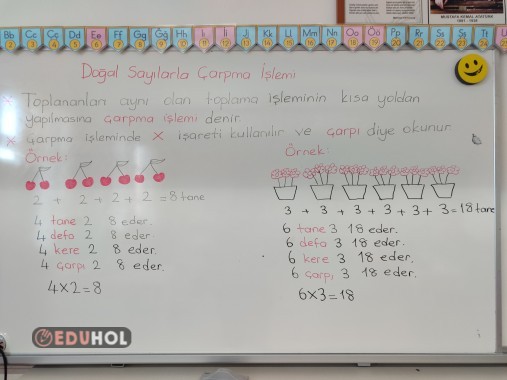 Bb Cc Çç Dd Ee Ff Gg Ğğ Hh Iı İi Jj Kk Ll Mm Nn Oo Öö Pp Rr Ss Şş Tt U
2 3 4 5 6 7 8 9 10 11 12 13 14 15 16 17 18 19 20 21 22 23 24
MUSTAFA KEMAL ATATÜRK
1881 - 1938
Doğal Sayılarla Çarpma İşlemi
x Toplananları aynı olan toplama işleminin kısa yoldan
yapılmasına çarpma işlemi denir.
x Çarpma işleminde x işareti kullanılır ve çarpı diye okunur.
Örnek:
2 + 2 + 2 + 2 = 8 tane
4 tane 2 8 eder.
4 defa 2 8 eder.
4 kere 2 8 eder.
4 çarpı 2 8 eder.
4x2=8
Örnek:
3 + 3 + 3 + 3 + 3 + 3 = 18 tane
6 tane 3 18 eder.
6 defa 3 18 eder.
6 kere 3 18 eder.
6 çarpı 3 18 eder.
6x3=18
EDUHOL